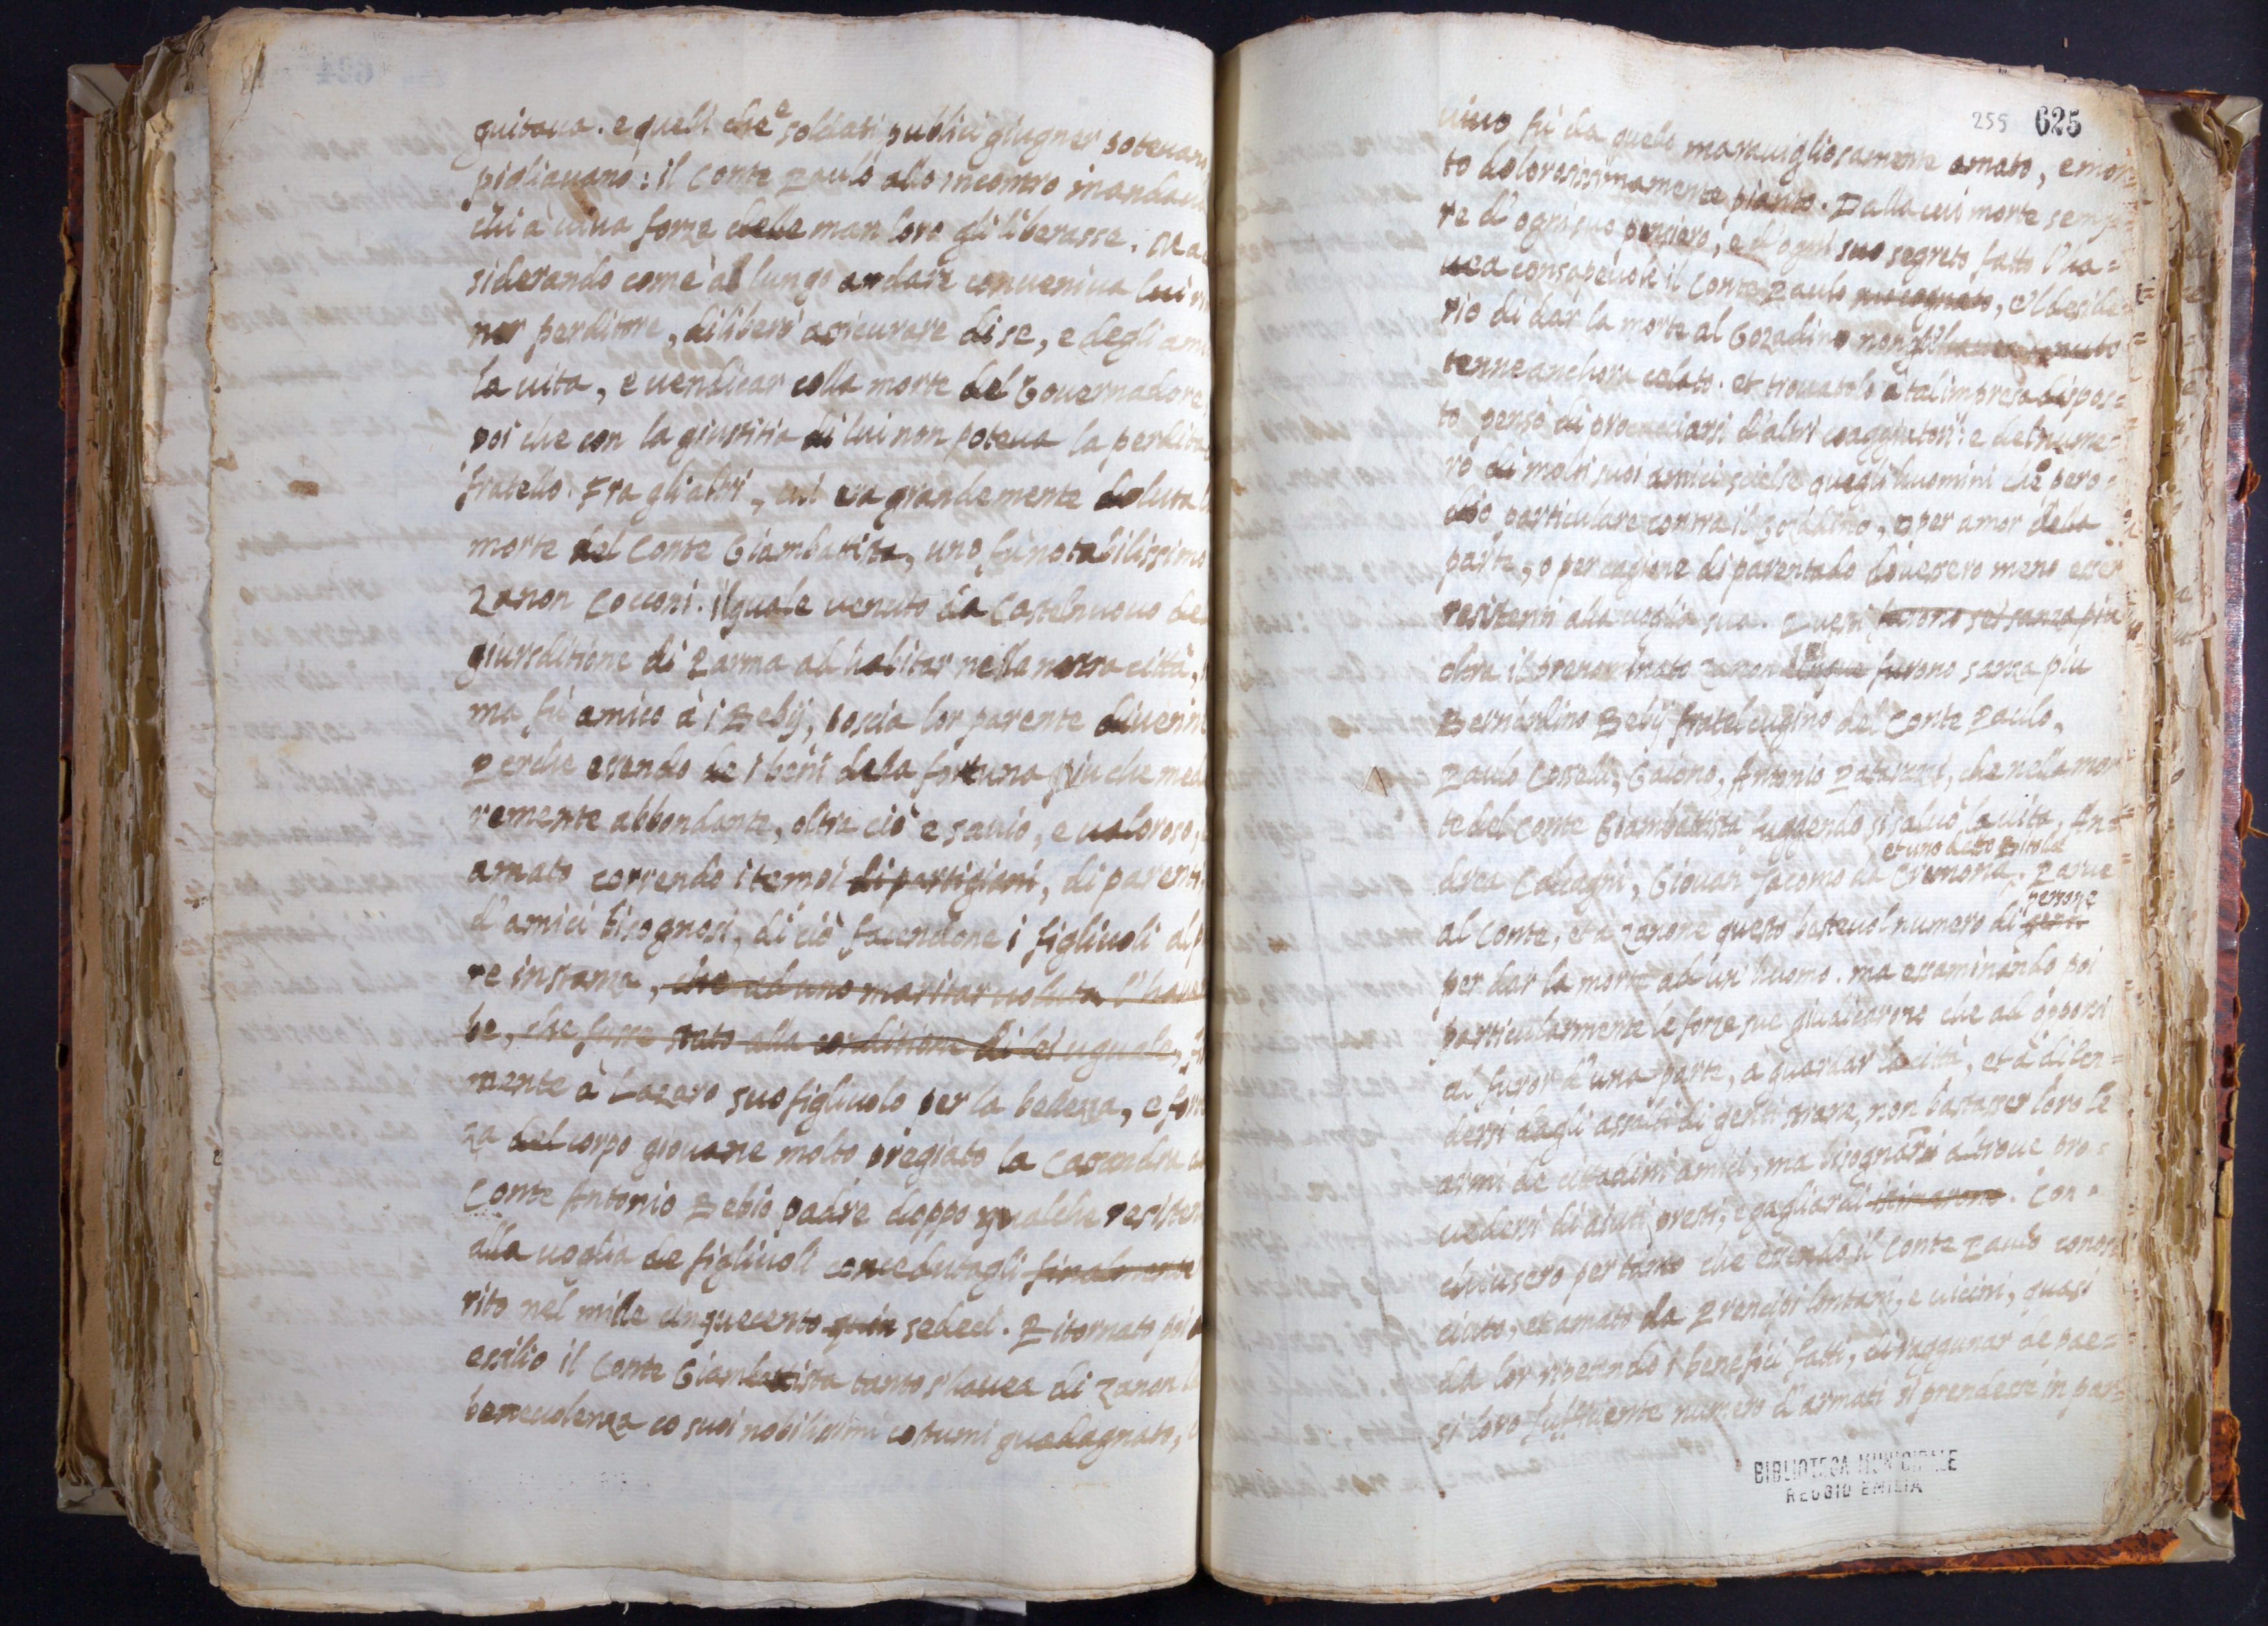 guitaua. e quelli che e soldati publici giugner poteuano
pigliauano: il Conte Paulo allo incontro mandaua
chi à uiua forza delle man loro gli liberasse. Ma
siderando come al lungo andare conueniua lui
ner perditore, diliberò assicurare di se, e degli
la uita, e uendicar colla morte del Gouernadore
poi che con la giustitia di lui non poteua la perdita
fratello. Fra gli altri, cui era grandemente doluta
morte del Conte Giambattista, uno fu notabilissimo
Zanon Cocconi. il quale uenuto da Castelnuouo
giurisditione di Parma ad habitar nella nostra città,
ma fù amico à i Bebij, poscia lor parente diuenne
Perche essendo de i beni dela fortuna piu che
cremente abbondante, oltra ciò e sauio, e ualoroso,
amato correndo i tempi di partigiani, di parenti,
d'amici bisognosi, di ciò facendone i figliuoli al
re instanza, che ad uno maritar uoluta l'
be, che fusse stato alla conditione di lei uguale,
mente à Lazero suo figliuolo per la bellezza, e
za del corpo giouane molto pregiato la Casandra
Conte Antonio Bebio padre doppo qualche
alla uoglia de figliuoli concedutagli finalmente
rito nel mille cinquecento quin sedeci. Ritornato poi
essilio il Conte Giambattista tanto s'hauea di Zanon
beneuolenza co suoi nobilissimi costumi guadagnato,
255 625
uiuo fù da quello marauigliosamente amato, e mor=
to dolorosissimamente pianto. Dalla cui morte semp=
re d'ogni suo pensiero, e d'ogni suo segreto fatto l'ha=
uea consapeuole il Conte Paulo, e'l deside=
rio di dar la morte al Gozadino non gli hauea tenuto
tenne anchora celato. et trouatolo à tal impresa dispos=
to pensò di procacciarsi d'altri coaggiutori: e del nume=
ro di molti suoi amici scielse quegli huomini che per o=
dio particulare contra il Gozadino, o per amor della
parte, o per cagione di parentado douessero meno esser
resistenti alla uoglia sua. Questi furono sei sanza piu
oltra il prenominato Zanon furono sanza piu
Bernardino Bebij fratel cugino del Conte Paulo,
Paulo Casselli, Gaiono, Antonio, che nella mor=
te del Conte Giambattista fuggendo si saluò la uita, An=
et uno detto
drea Calcagni, Giouan Jacomo da Cremona. Parue
persone
al Conte, et à Zanone questo basteuol numero di genti
per dar la morte ad un huomo. ma essaminando poi
particularmente le forze sue giudicarono che ad opporsi
al furor d'una parte, a guardar la città, et à difen=
dersi dagli assalti di genti strane, non bastasser loro le
armi de cittadini amici, ma bisognarsi altroue pro=
uedersi di aiuti presti, e gagliardi. Con=
chiusero per tanto che essendo il Conte Paulo conos=
ciuto, et amato da Prencipi lontani, e uicini, quasi
da lor ripetendo i benefici fatti, di raggunar de pae=
si loro sufficiente numero d'armati si prendesse in par=
BIBLIOTECA MUNICIPALE
REGGIO EMILIA